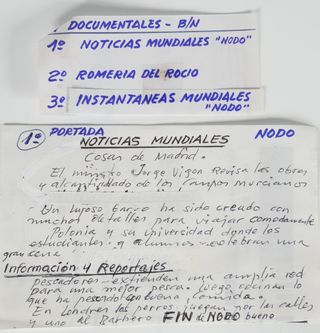 DOCUMENTALES - B/N
1º NOTICIAS MUNDIALES "NODO"
2º ROMERIA DEL ROCIO
3º INSTANTANEAS MUNDIALES
"NODO"
1º PORTADA NODO
NOTICIAS MUNDIALES
Cosas de Madrid.
El ministro Jorge Vigon Revisa las obras
y alcantarillado de los campos murcianos
Un lujoso barco ha sido creado con
muchos detalles para viajar comodamente
Polonia y su universidad donde los
estudiantes y alumnos celebran una
gran cena
Información y Reportajes
pescadores extienden una amplia red
para una mejor pesca. luego cocinan lo
que ha pescado con buena comida.
En Londres los perros juegan por las calles
y uno al Barbero FIN de NODO bueno